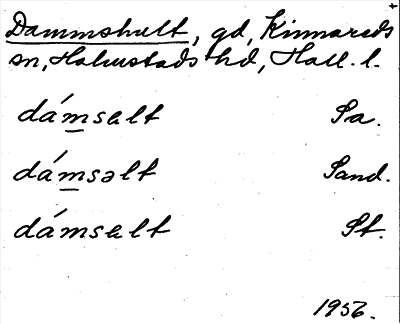 Dammshult, gd, Kinnareds
sn, Halmstads hd, Hall. l.
dámsȧlt Sa.
dámsəlt Sand.
dámsȧlt St.
1956.